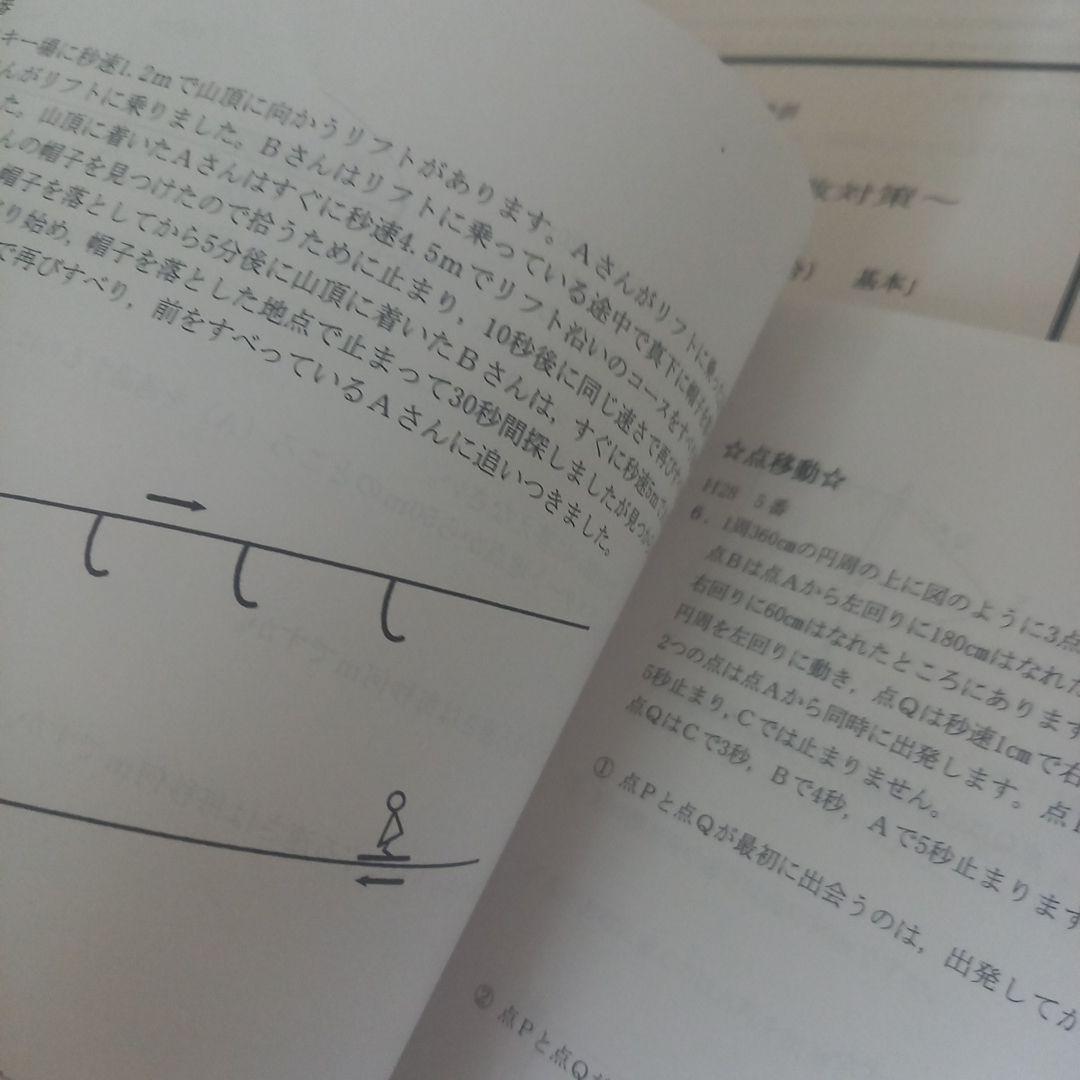 番
キー場に秒速1.2mで山頂に向かうリフトがあります。Aさんがリフトに乗っ
んがリフトに乗りました。Bさんはリフトに乗っている途中で真下に帽子を
た。山頂に着いたAさんはすぐに秒速4.5mでリフト沿いのコースをすべ
んの帽子を見つけたので拾うために止まり，10秒後に同じ速さで再び
帽子を落としてから5分後に山頂に着いたBさんは，すぐに秒速5mで
り始め，帽子を落とした地点で止まって30秒間探しましたが見つ
で再びすべり，前をすべっているAさんに追いつきました。
対策～
基本」
☆点移動☆
H28 5番
6．1周360㎝の円周の上に図のように3点
点Bは点Aから左回りに180㎝はなれた
右回りに60㎝はなれたところにあります
円周を左回りに動き，点Qは秒速1cmで右
2つの点は点Aから同時に出発します。点
5秒止まり，Cでは止まりません。
点QはCで3秒，Bで4秒，Aで5秒止まります
① 点Pと点Qが最初に出会うのは，出発してか
② 点Pと点Qが